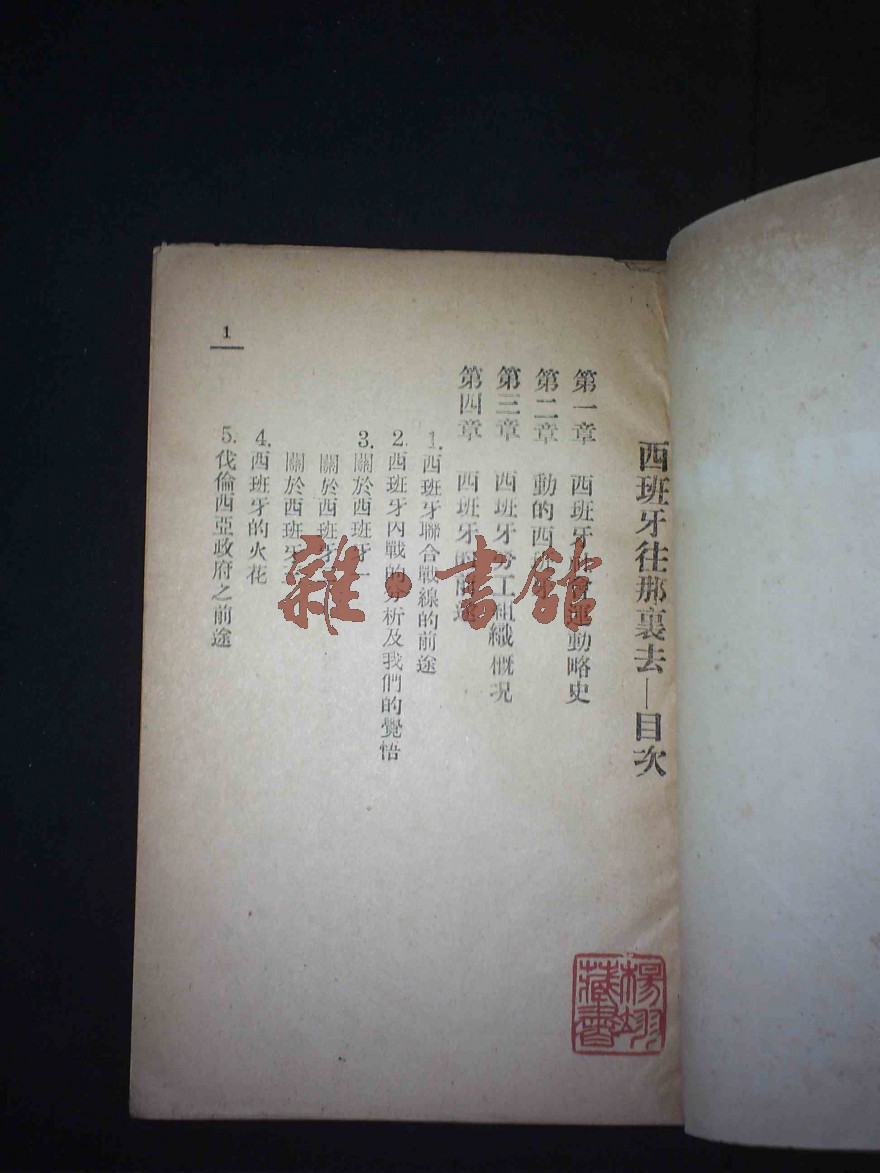 西班牙往那裏去—目次
第一章 西班牙社會運動略史
第二章 動的西班牙
第三章 西班牙勞工組織概况
第四章 西班牙的前途
1. 西班牙聯合戰線的前途
2. 西班牙內戰的分析及我們的覺悟
3. 關於西班牙一
關於西班牙
關於西班牙
4. 西班牙的火花
5. 伐倫西亞政府之前途
1
雜·書館
楊翊
藏書